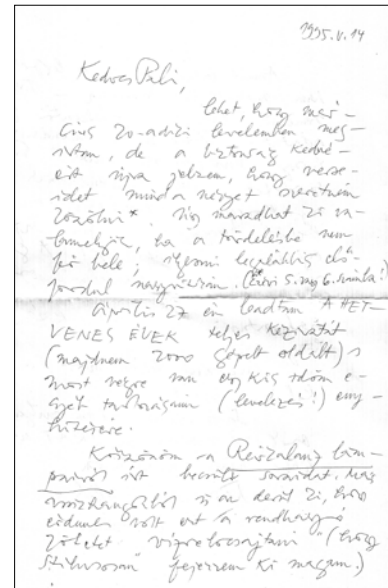 1995. V. 14
Kedves Pali,
lehet, hogy már-
cius 20-adiki levelemben meg-
írtam, de a biztonság kedvé-
ért újra jelzem, hogy verse-
idet mind a négyet szeretném
közölni*. Míg maradhat ki va-
lamelyik, ha a tördelésbe nem
fér bele; ilyesmi legalábbis elő-
fordul nagyritkán. (Évi 5. vagy 6. számba!)
Április 27-én leadtam A HET-
VENES ÉVEK teljes kéziratát
(majdnem 2000 gépelt oldalt) s
most végre van egy kis időm e-
gyéb tartozásaim (levelezés!) eny-
hítésére.
Köszönöm a Révkalauz lám-
pairól írt becsült soraidat. Már
is on derül ki, hogy
érdemes volt ezt a rendhagyó
kötetet "vízrebocsájtani" (hogy
stílusosan fejezzem ki magam.)